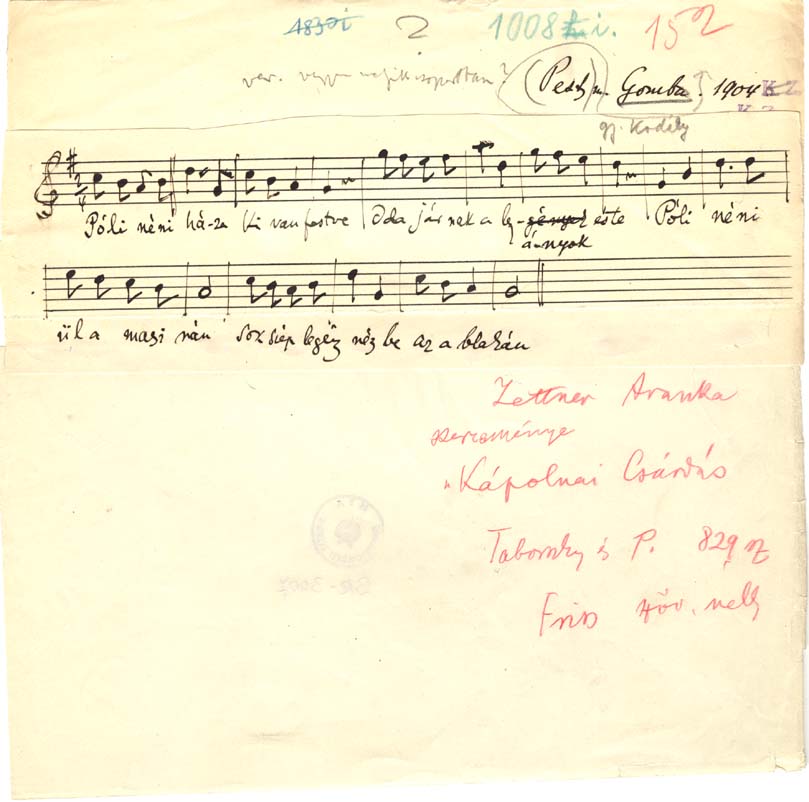 483
2
1008 i.
15
var. vagy
(Pest) m. Gomba. 1904 K Z
K Z
gy. Kodály
Póli néni há-za Ki van festve Oda járnak a le-gények este Póli néni
á-nyok
ül a masi nán Sok szép legény néz be az a blakán
Zettner Aranka
szerzeménye
"Kápolnai Csárdás
Taborszky és P. 829
Friss